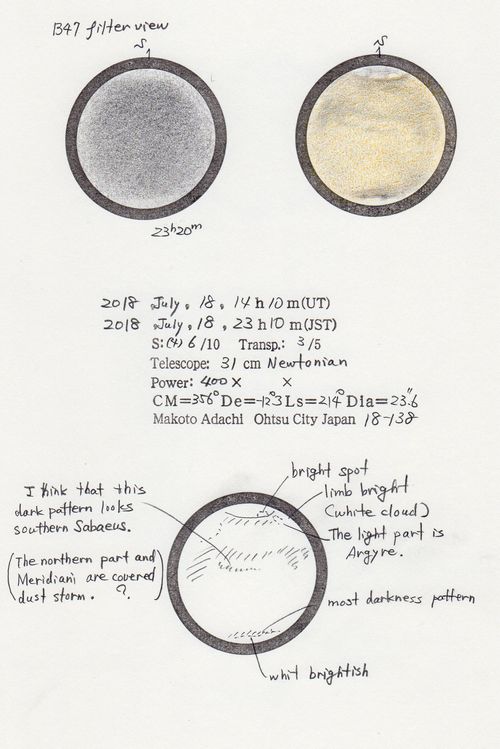 B47 filter view
S
S
23h20m
2018 July, 18, 14 h 10 m (UT)
2018 July, 18, 23 h 10 m (JST)
S: (4) 6 /10 Transp.: 3 /5
Telescope: 31 cm Newtonian
Power: 400 X X
CM=356° De=-12°.3 Ls=214° Dia=23".6
Makoto Adachi Ohtsu City Japan 18-138
bright spot
limb bright
(white cloud)
I think that this
dark pattern looks
southern Sabaeus.
The light part is
Argyre.
(The northern part and
Meridiani are covered
dust storm. ?.)
most darkness pattern
whit brightish